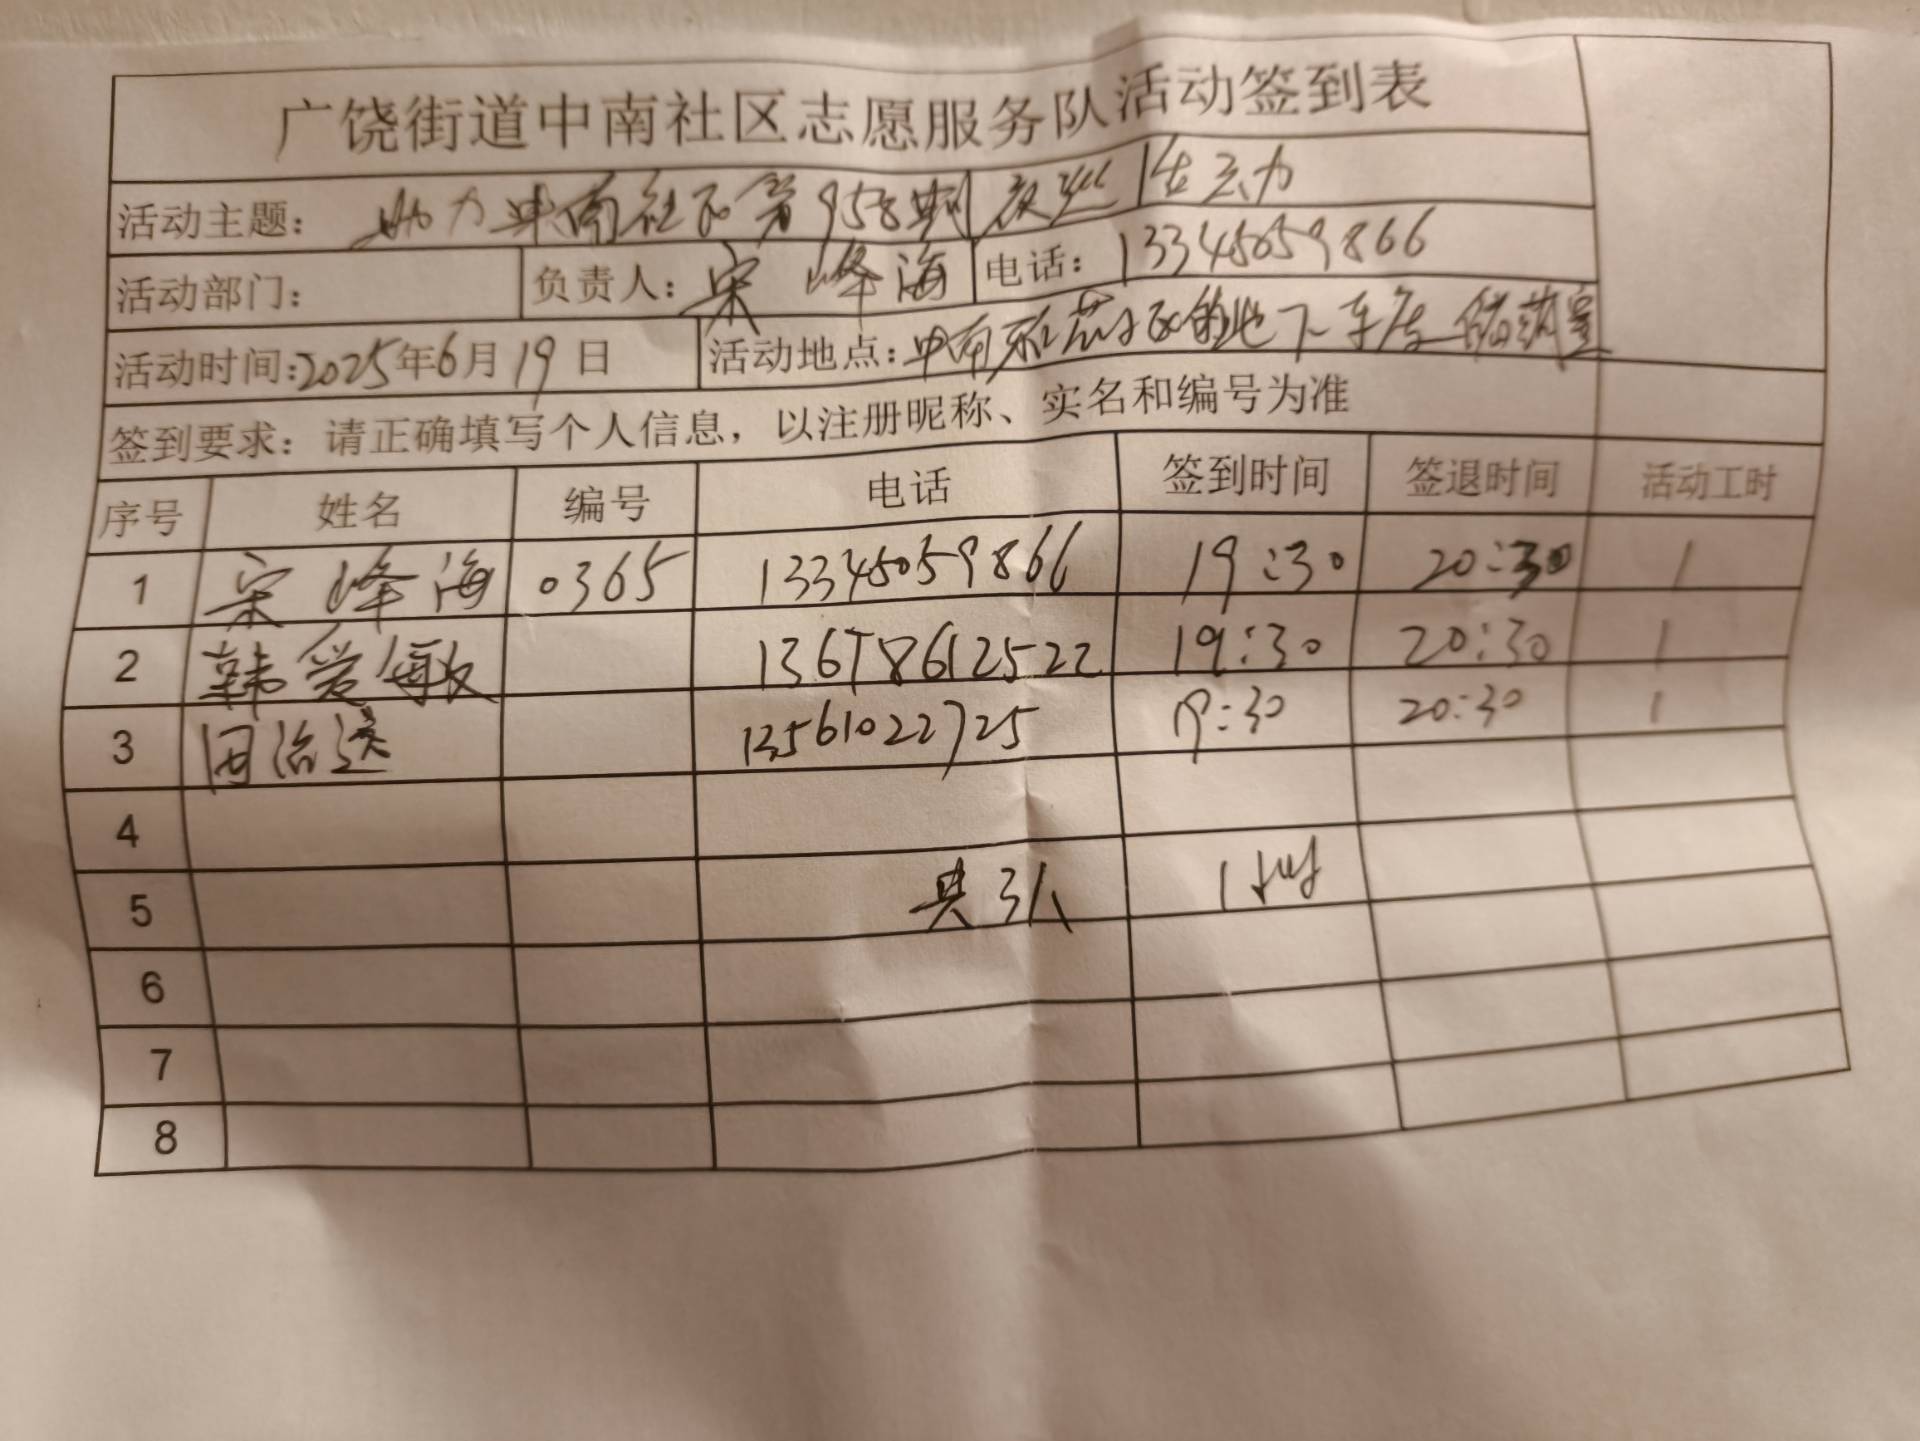 广饶街道中南社区志愿服务队活动签到表
活动主题: 助力中南社区第958期夜巡活动
活动部门: 负责人: 宋峰海 电话: 13345059866
活动时间:2025年6月19日 活动地点: 中南 的地下车库 储藏室
签到要求: 请正确填写个人信息，以注册昵称、实名和编号为准
序号 姓名 编号 电话 签到时间 签退时间 活动工时
1 宋峰海 0365 13345059866 19:30 20:30 1
2 韩爱敏 13678612522 19:30 20:30 1
3 田治 13561022725 19:30 20:30 1
4
5 共3人 1小时
6
7
8